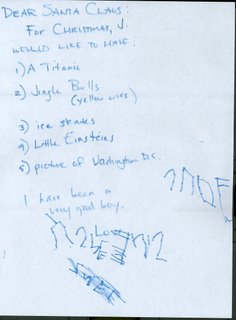 DEAR SANTA CLAUS:
FOR CHRISTMAS, I
WOULD LIKE TO HAVE:
1) A Titanic
2) Jingle Bells
(yellow ones)
3) ice skates
4) Little Einsteins
5) picture of Washington D.C.
I have been a
very good boy.
Love